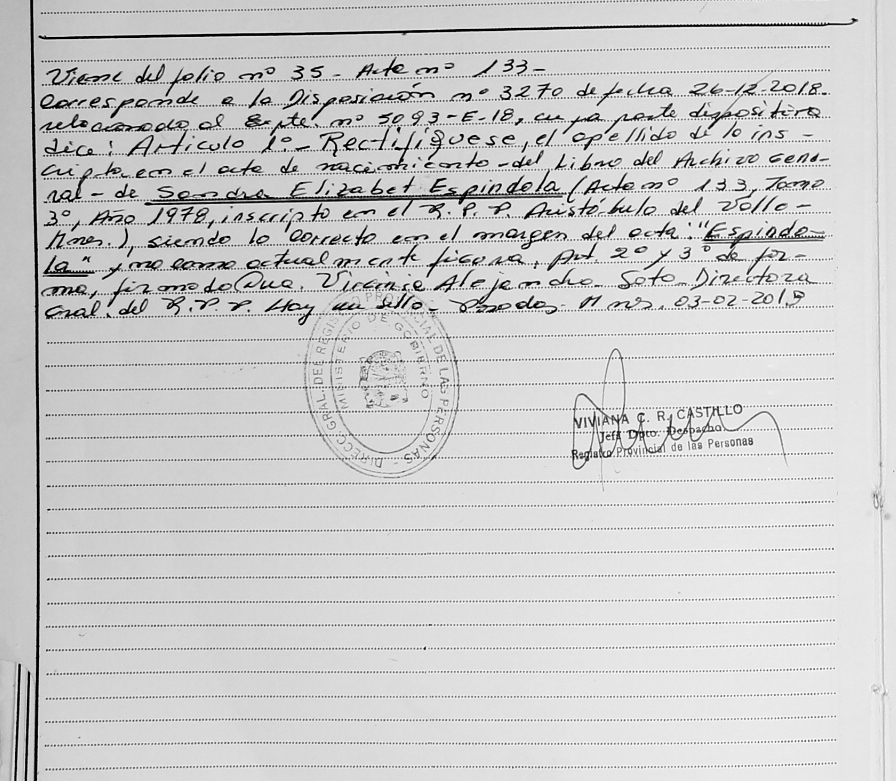 Viene del folio nº 35 - Acta nº 133 -
Corresponde a la Disposición nº 3270 de fecha 26-12-2018.
relacionado al Expte. nº 5093-E-18, cuya parte dispositiva
dice: Artículo 1º - Rectifíquese, el apellido de la ins -
cripta, en el acta de nacimiento - del Libro del Archivo Gene-
ral - de Sandra Elizabet Espindola (Acta nº 133, Tomo
3º, Año 1978, inscripto en el R. P. P. Aristóbulo del Valle -
Mnes.), siendo lo correcto en el margen del acta: "Espindo-
la" y no como actualmente figura. Art 2º y 3º de for-
ma, firmado Dra. Virginia Alejandra Soto - Directora
Gral. del R. P. P. Hay un sello - Posadas - Mnes. 03-02-2019
DIRECC. GRAL. DEL REGISTRO PROVINCIAL DE LAS PERSONAS -
MINISTERIO DE GOBIERNO
VIVIANA C. R. CASTILLO
Jefa Dpto. Despacho
Registro Provincial de las Personas